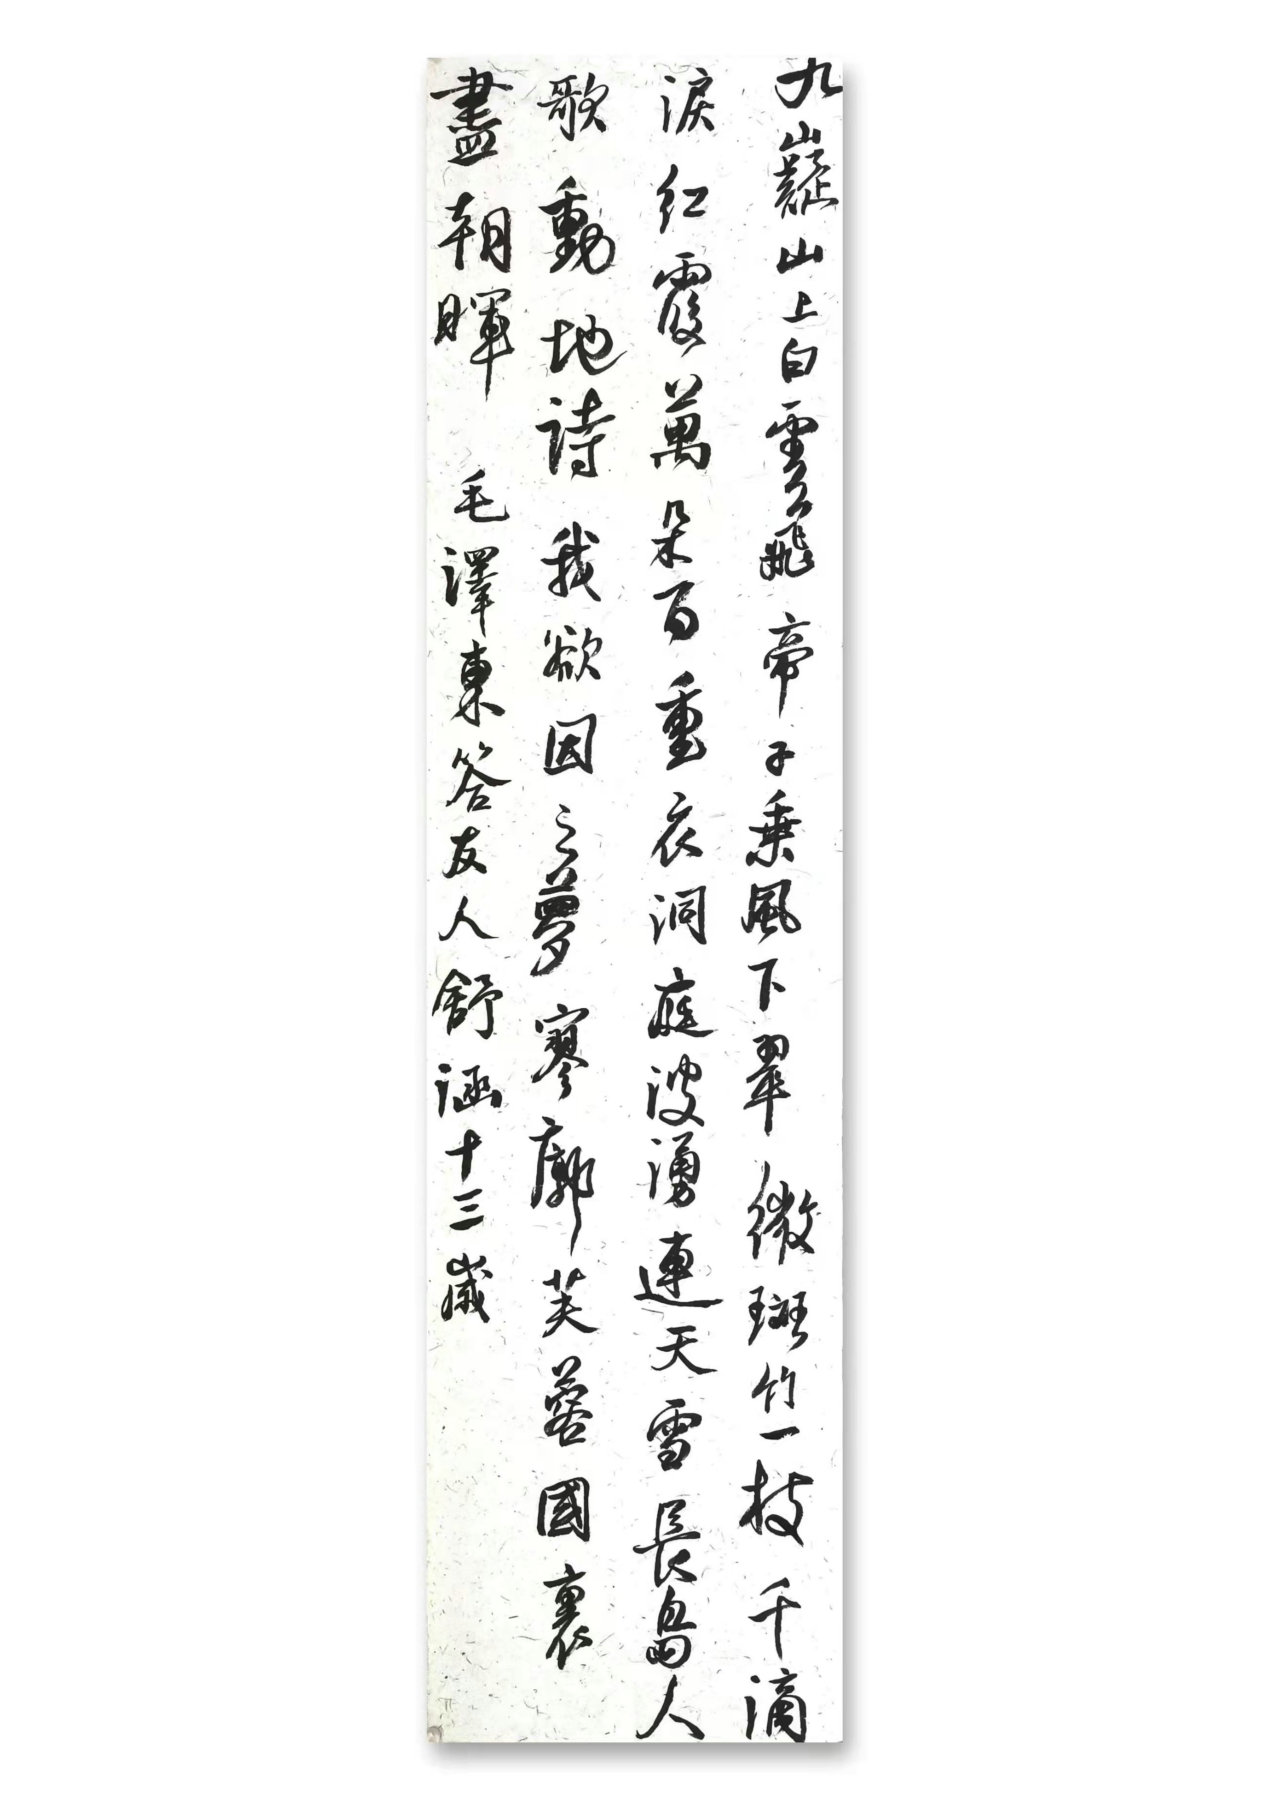 九嶷山上白雲飛帝子乗風下翠微斑竹一枝千滴
淚紅霞萬朵百重衣洞庭波湧連天雪長島人
歌動地詩我欲因之夢寥廓芙蓉國裏
盡朝暉 毛澤東答友人舒涵十三歲